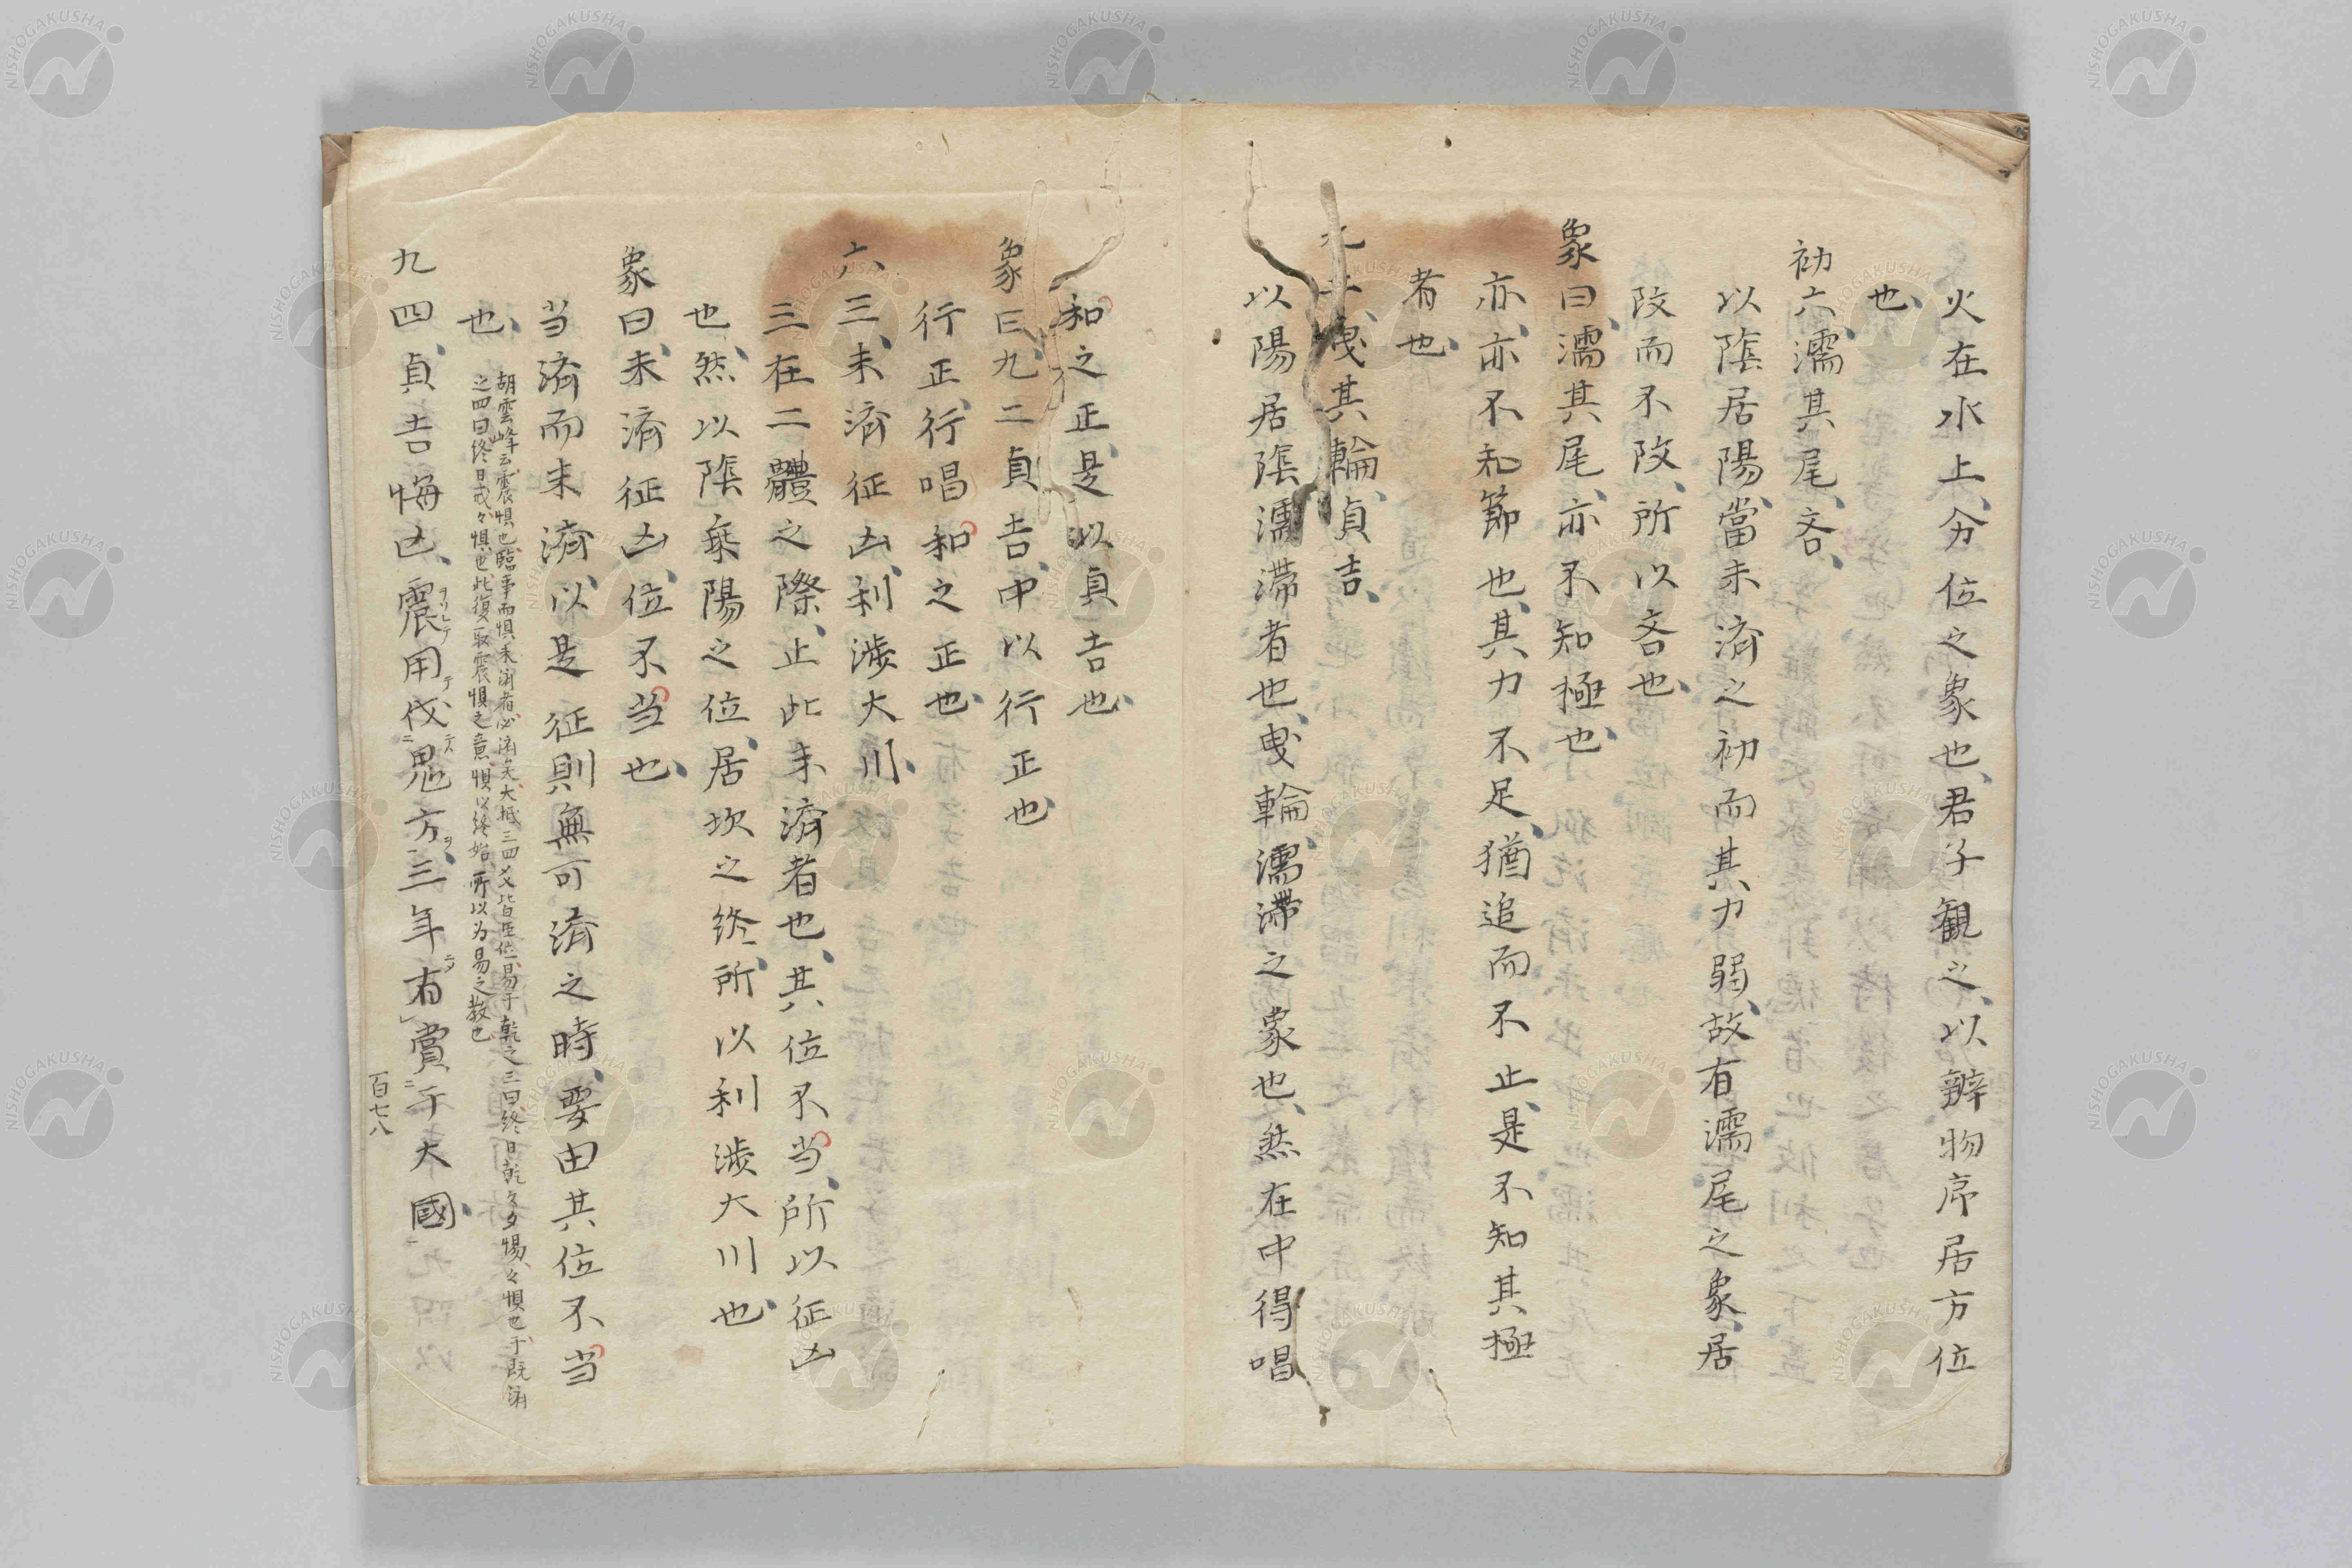 火在水上、分位之象也、君子観之、以辨物序居方位
也、
初六、濡其尾、吝、
以陰居陽、當未済之初、而其力弱、故有濡尾之象、居
時而不時、所以吝也、
象曰、濡其尾、亦不知極也、
亦、亦不知節也、其力不足、猶追而不止、是不知其極
者也、
九二、曳其輪、貞吉、
以陽居陰、濡滞者也、曳輪濡滞之象也、然在中得唱
和之正、是以貞吉也、
象曰、九二貞吉、中以行正也、
行正、行唱和之正也、
六三、未済、征凶、利渉大川、
三在二體之際、止此未済者也、其位不当、所以征凶
也、然以陰乗陽之位、居坎之終、所以利渉大川也、
象曰、未済征凶、位不当也、
当済而未済、以是征則無可済之時、要由其位不当
也、
胡雲峰云、震惧也、臨事而惧、未済者必済矣、大抵三四爻皆臣位、易于乾之三曰、終日乾々夕惕、々惧也、于既済
之四曰終日戒、々惧也、此復取震惧之意、惧以終始、所以为易之教也
九四、貞吉、悔亡、震用伐鬼方、三年有賞于大國、
ヲリヒテ テ テスニ ヲ ニ ラ ニ
百七八
NISHOGAKUSHA